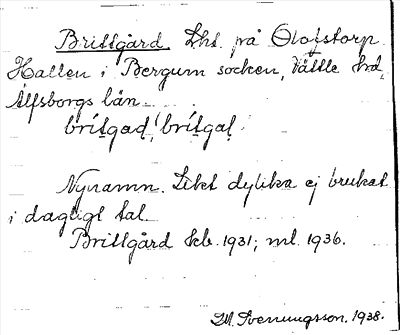 Brittgård. Lht. på Olofstorp
Hallen i Bergum socken, Vättle hd,
Älfsborgs län.
brítgad, brítgaḷ.
Nynamn. Likt dylika ej brukat
i dagligt tal.
Brittgård kb. 1931; ml. 1936.
M. Svenungsson. 1938.